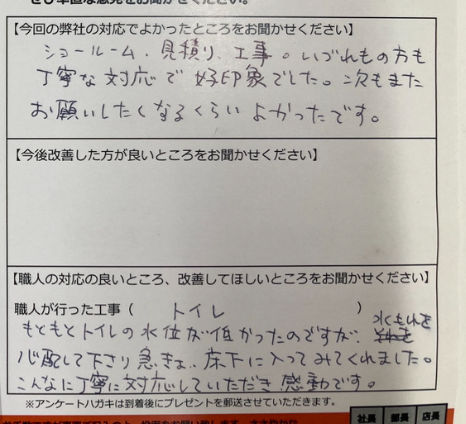 【今回の弊社の対応でよかったところをお聞かせください】
ショールーム、見積り、工事。いづれもの方も
丁寧な対応で好印象でした。次もまた
お願いしたくなるくらいよかったです。
【今後改善した方が良いところをお聞かせください】
【職人の対応の良いところ、改善してほしいところをお聞かせください】
職人が行った工事（ トイレ ）
もともとトイレの水位が低かったのですが、水もれを
心配して下さり急きょ、床下に入ってみてくれました。
こんなに丁寧に対応していただき感動です。
※アンケートハガキは到着後にプレゼントを郵送させていただきます。
社長 部長 店長